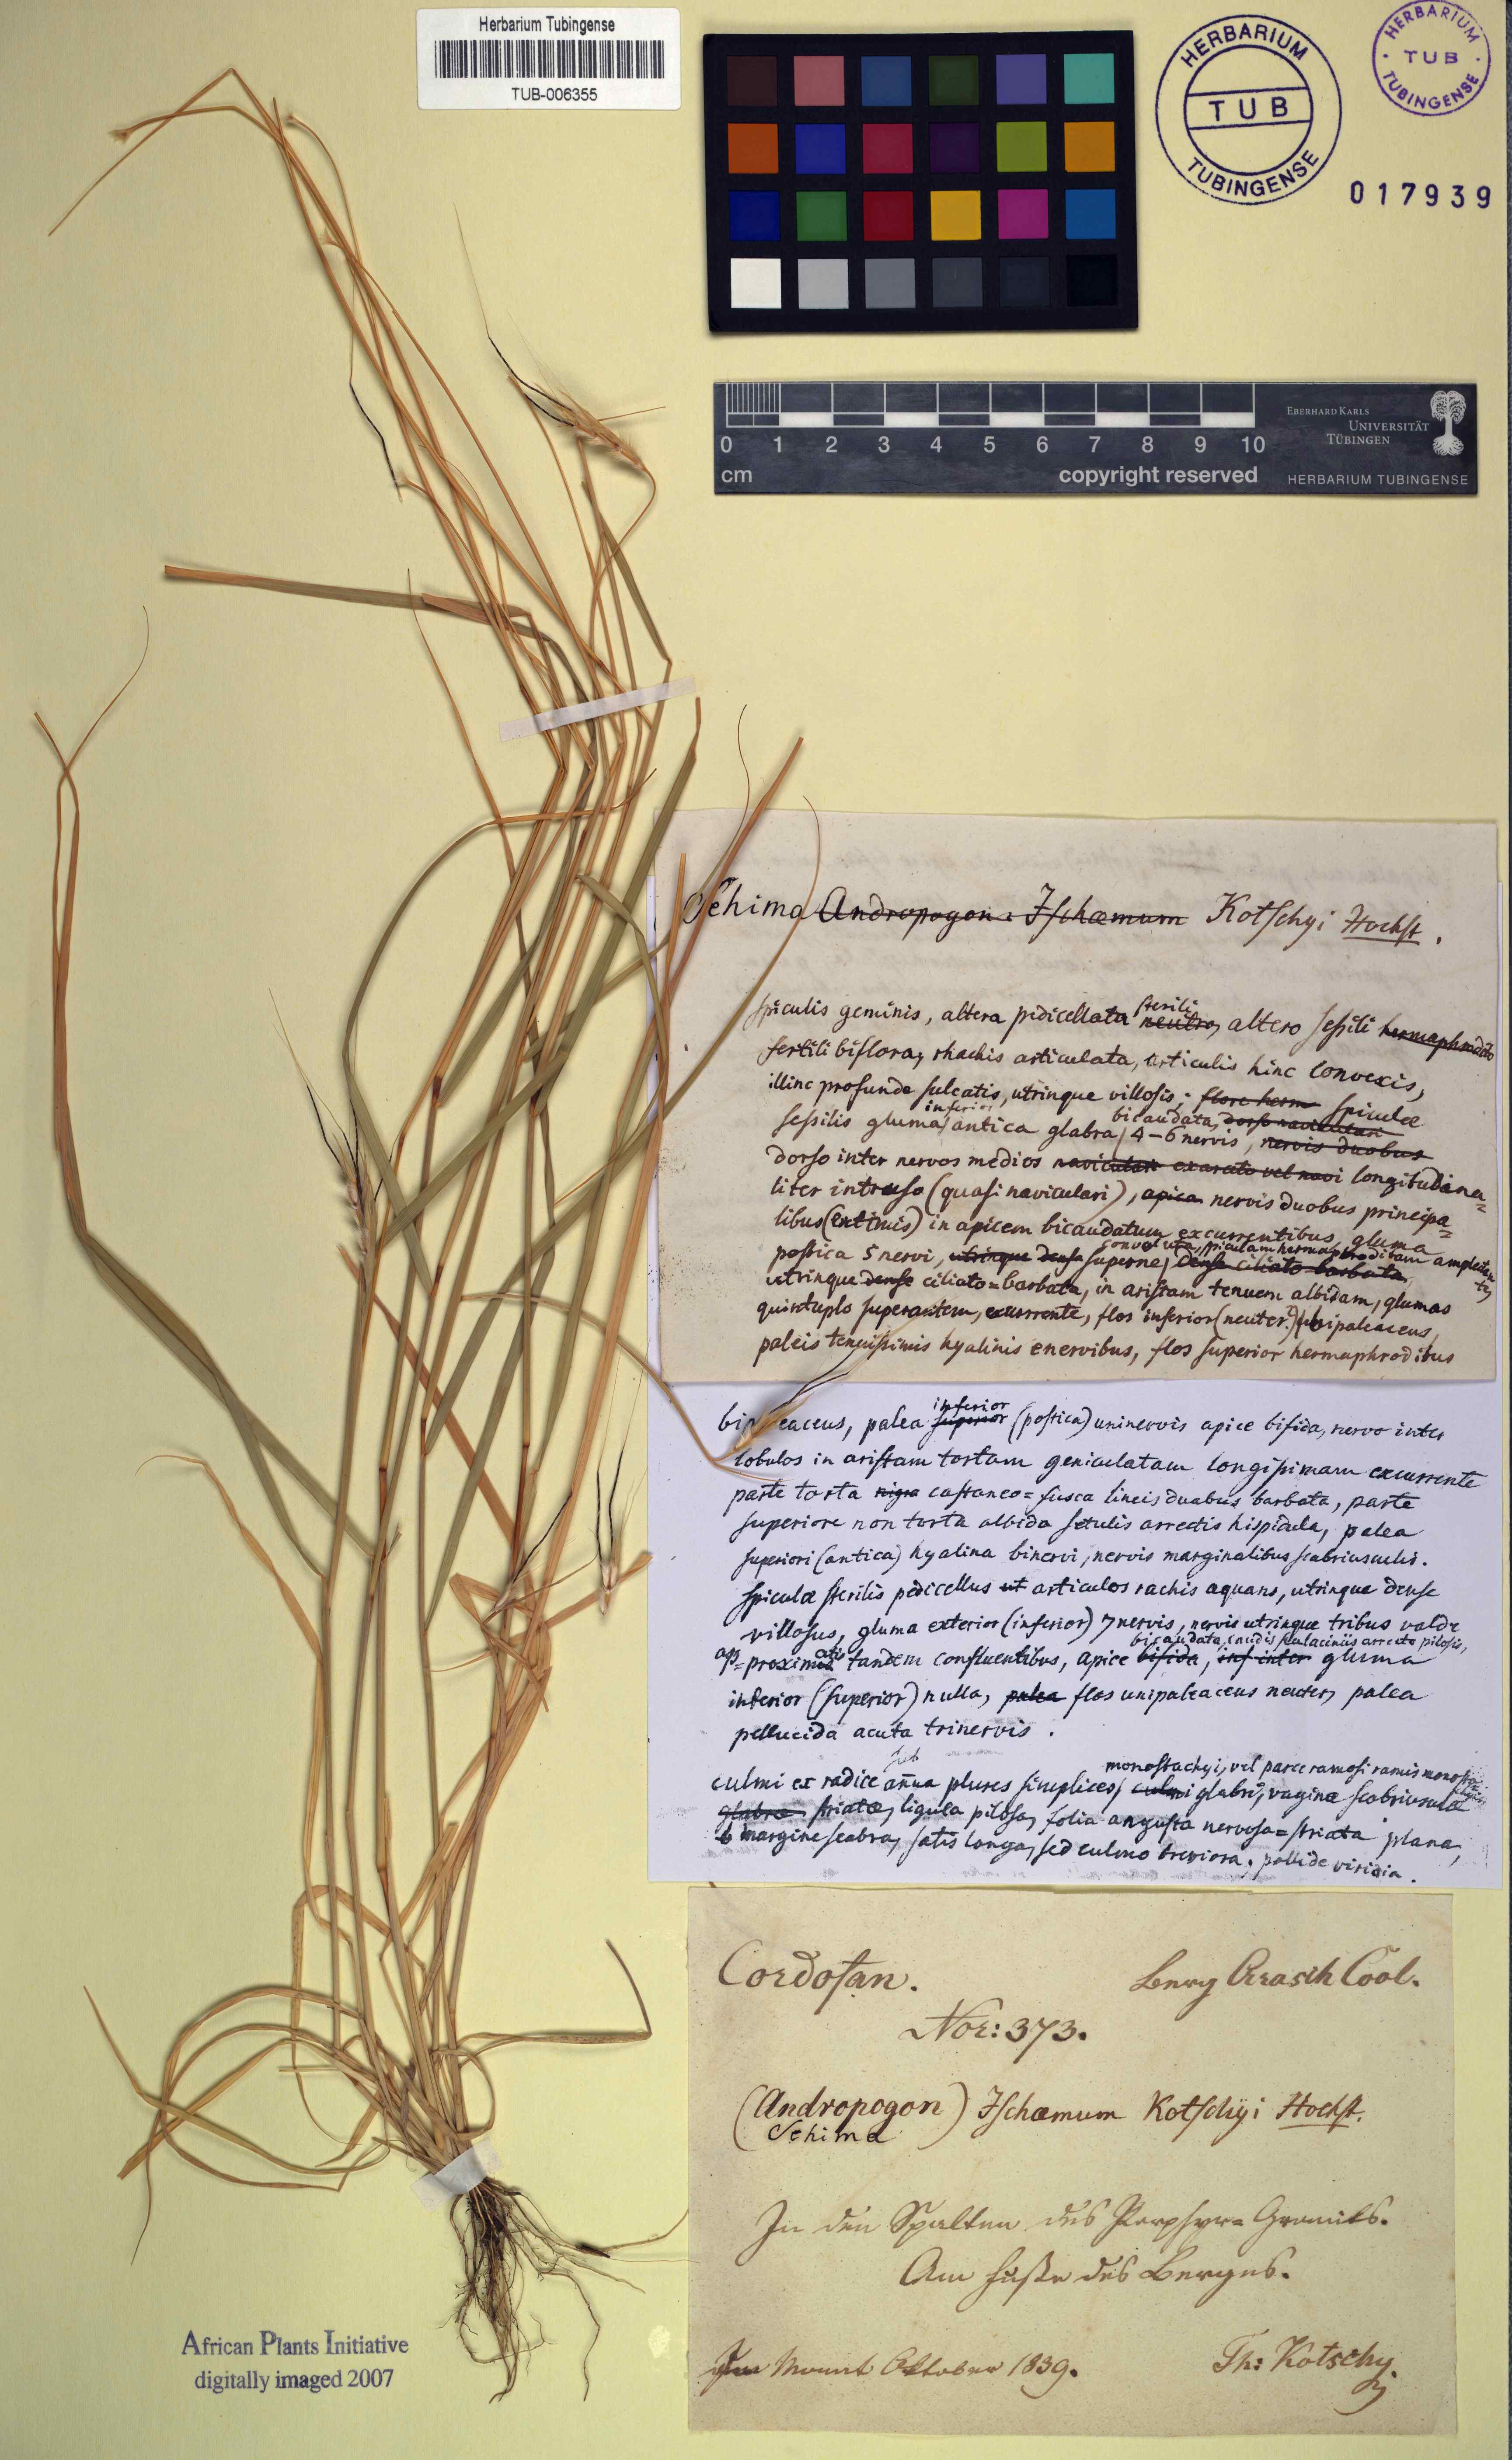 Herbarium Tubingense
TUB-006355
HERBARIUM TUB TUBINGENSE
HERBARIUM TUB TUBINGENSE
017939
0 1 2 3 4 5 6 7 8 9 10
cm copyright reserved
EBERHARD KARLS UNIVERSITÄT TÜBINGEN
HERBARIUM TUBINGENSE
Sehima Andropogon Ischaemum Kotschyi Hochst.
spiculis geminis, altera pidicellata sterili neutro, altero sessili hermaphrodito
fertili biflora, rhachis articulata, articulis hinc convexis,
illinc profunde sulcatis, utrinque villosis; flore herm spiculae
sessilis gluma inferior antica glabra, bicaudata, dorso naviculari 4-6 nervis, nervis duobus
dorso inter nervos medios naviculari exarato vel navi longitudina=
liter intruso (quasi naviculari), apice nervis duobus principa=
libus (extimis) in apicem bicaudatum excurrentibus, gluma
postica 5 nervi, utrinque dense superne convoluta, spiculam hermaphroditam amplectens dense ciliato barbata,
utrinque dense ciliato=barbata, in aristam tenuem albidam, glumas
quintuplo superantem, excurrente, flos inferior (neuter?) unipaleaceus,
paleis tenuissimis hyalinis enervibus, flos superior hermaphroditus
bipaleaceus, palea inferior superior (postica) uninervis apice bifida, nervo inter
lobulos in aristam tortam geniculatam longissimam excurrente
parte torta nigra castaneo=fusca lineis duabus barbata, parte
superiore non torta albida setulis arrectis hispidula, palea
superiori (antica) hyalina binervi, nervis marginalibus scabriusculis.
Spiculae sterilis pedicellus ut articulos rachis aquans, utrinque dense
villosus, gluma exterior (inferior) 7 nervis, nervis utrinque tribus valde
ap=proximatis tandem confluentibus, apice bifida, bicaudata, caudis arrecto pilosis, inf inter gluma
interior (superior) nulla, palea flos unipaleaceus neuter, palea
pellucida acuta trinervis.
culmi ex radice sub annua plures simplices, monostachyi, vel parce ramosi ramis monostachyis culmi glabri, vaginae scabriusculae
glabrae striatae, ligula pilosa, folia angusta nervosa=striata plana,
margine scabra, satis longa, sed culmo breviora, pallide viridia.
Cordofan. Berg Arrasch Cool.
Nor: 373.
(Andropogon) Ischaemum Kotschyi Hochst.
Sehima
In den Spalten des Porphyr=Granits.
Am Fuße des Berges.
Im Monat Oktober 1839. Th: Kotschy.
African Plants Initiative
digitally imaged 2007